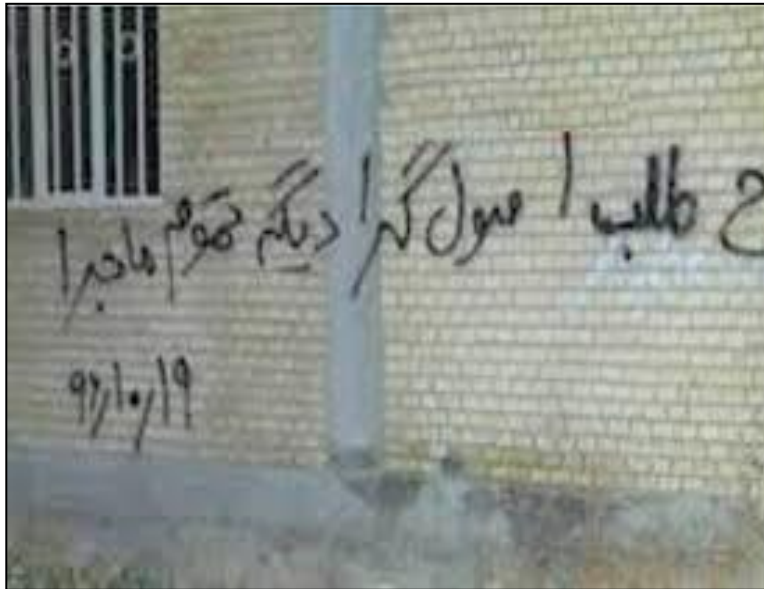 ح طلب اصول گرا دیگه تموم ماجرا
۹۶/۱۰/۱۹